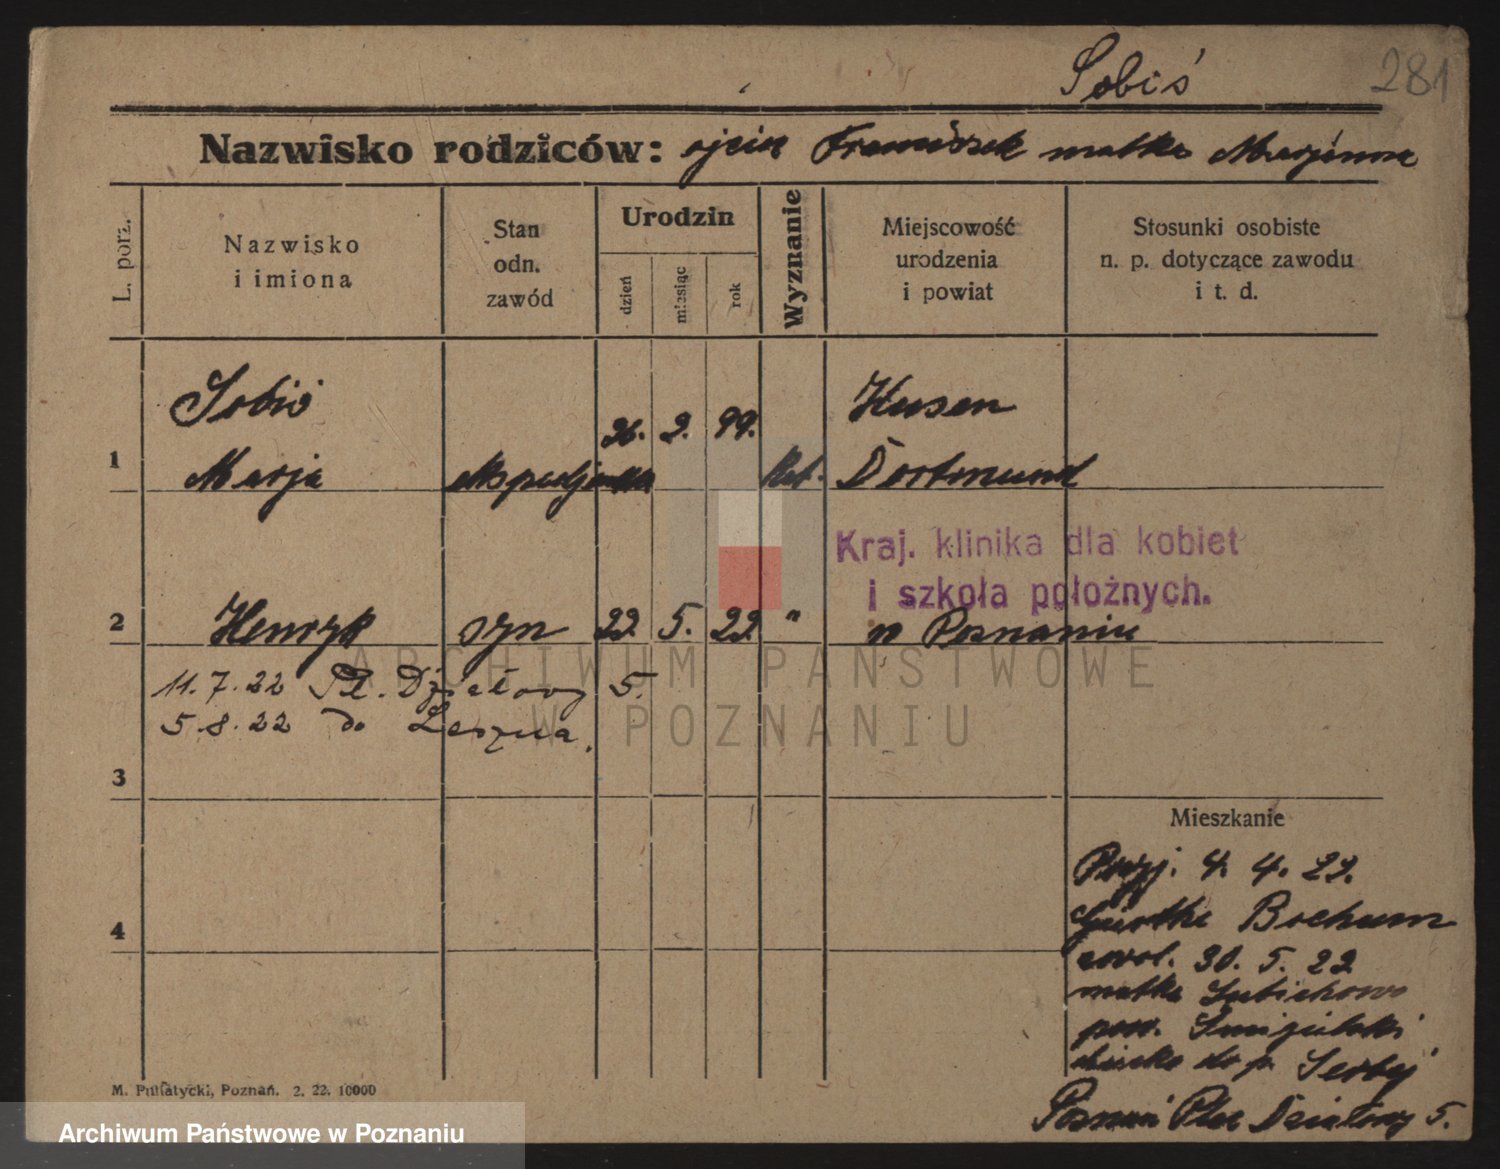 Sobiś 281
Nazwisko rodziców: ojciec Franciszek matka Marjanna
L. porz.
Nazwisko
i imiona
Stan
odn.
zawód
Urodzin
dzień
miesiąc
rok
Wyznanie
Miejscowość
urodzenia
i powiat
Stosunki osobiste
n. p. dotyczące zawodu
i t. d.
Sobiś Husen
26. 2. 99.
1 Marja ekspedjentka Kat. Dortmund
Kraj. klinika dla kobiet
i szkoła położnych.
2 Henryk syn 22. 5. 22. " w Poznaniu
11.7.22 Pl. Działowy 5.
5.8.22 do Leszna.
3
Mieszkanie
Przyj. 4. 4. 22.
Bochum
4
zwol. 30. 5. 22
matka
pow. Śmigielski
dziecko do p.
Poznań Plac Działowy 5.
M. Putiatycki, Poznań. 2. 22. 10000
ARCHIWUM PAŃSTWOWE
W POZNANIU
Archiwum Państwowe w Poznaniu